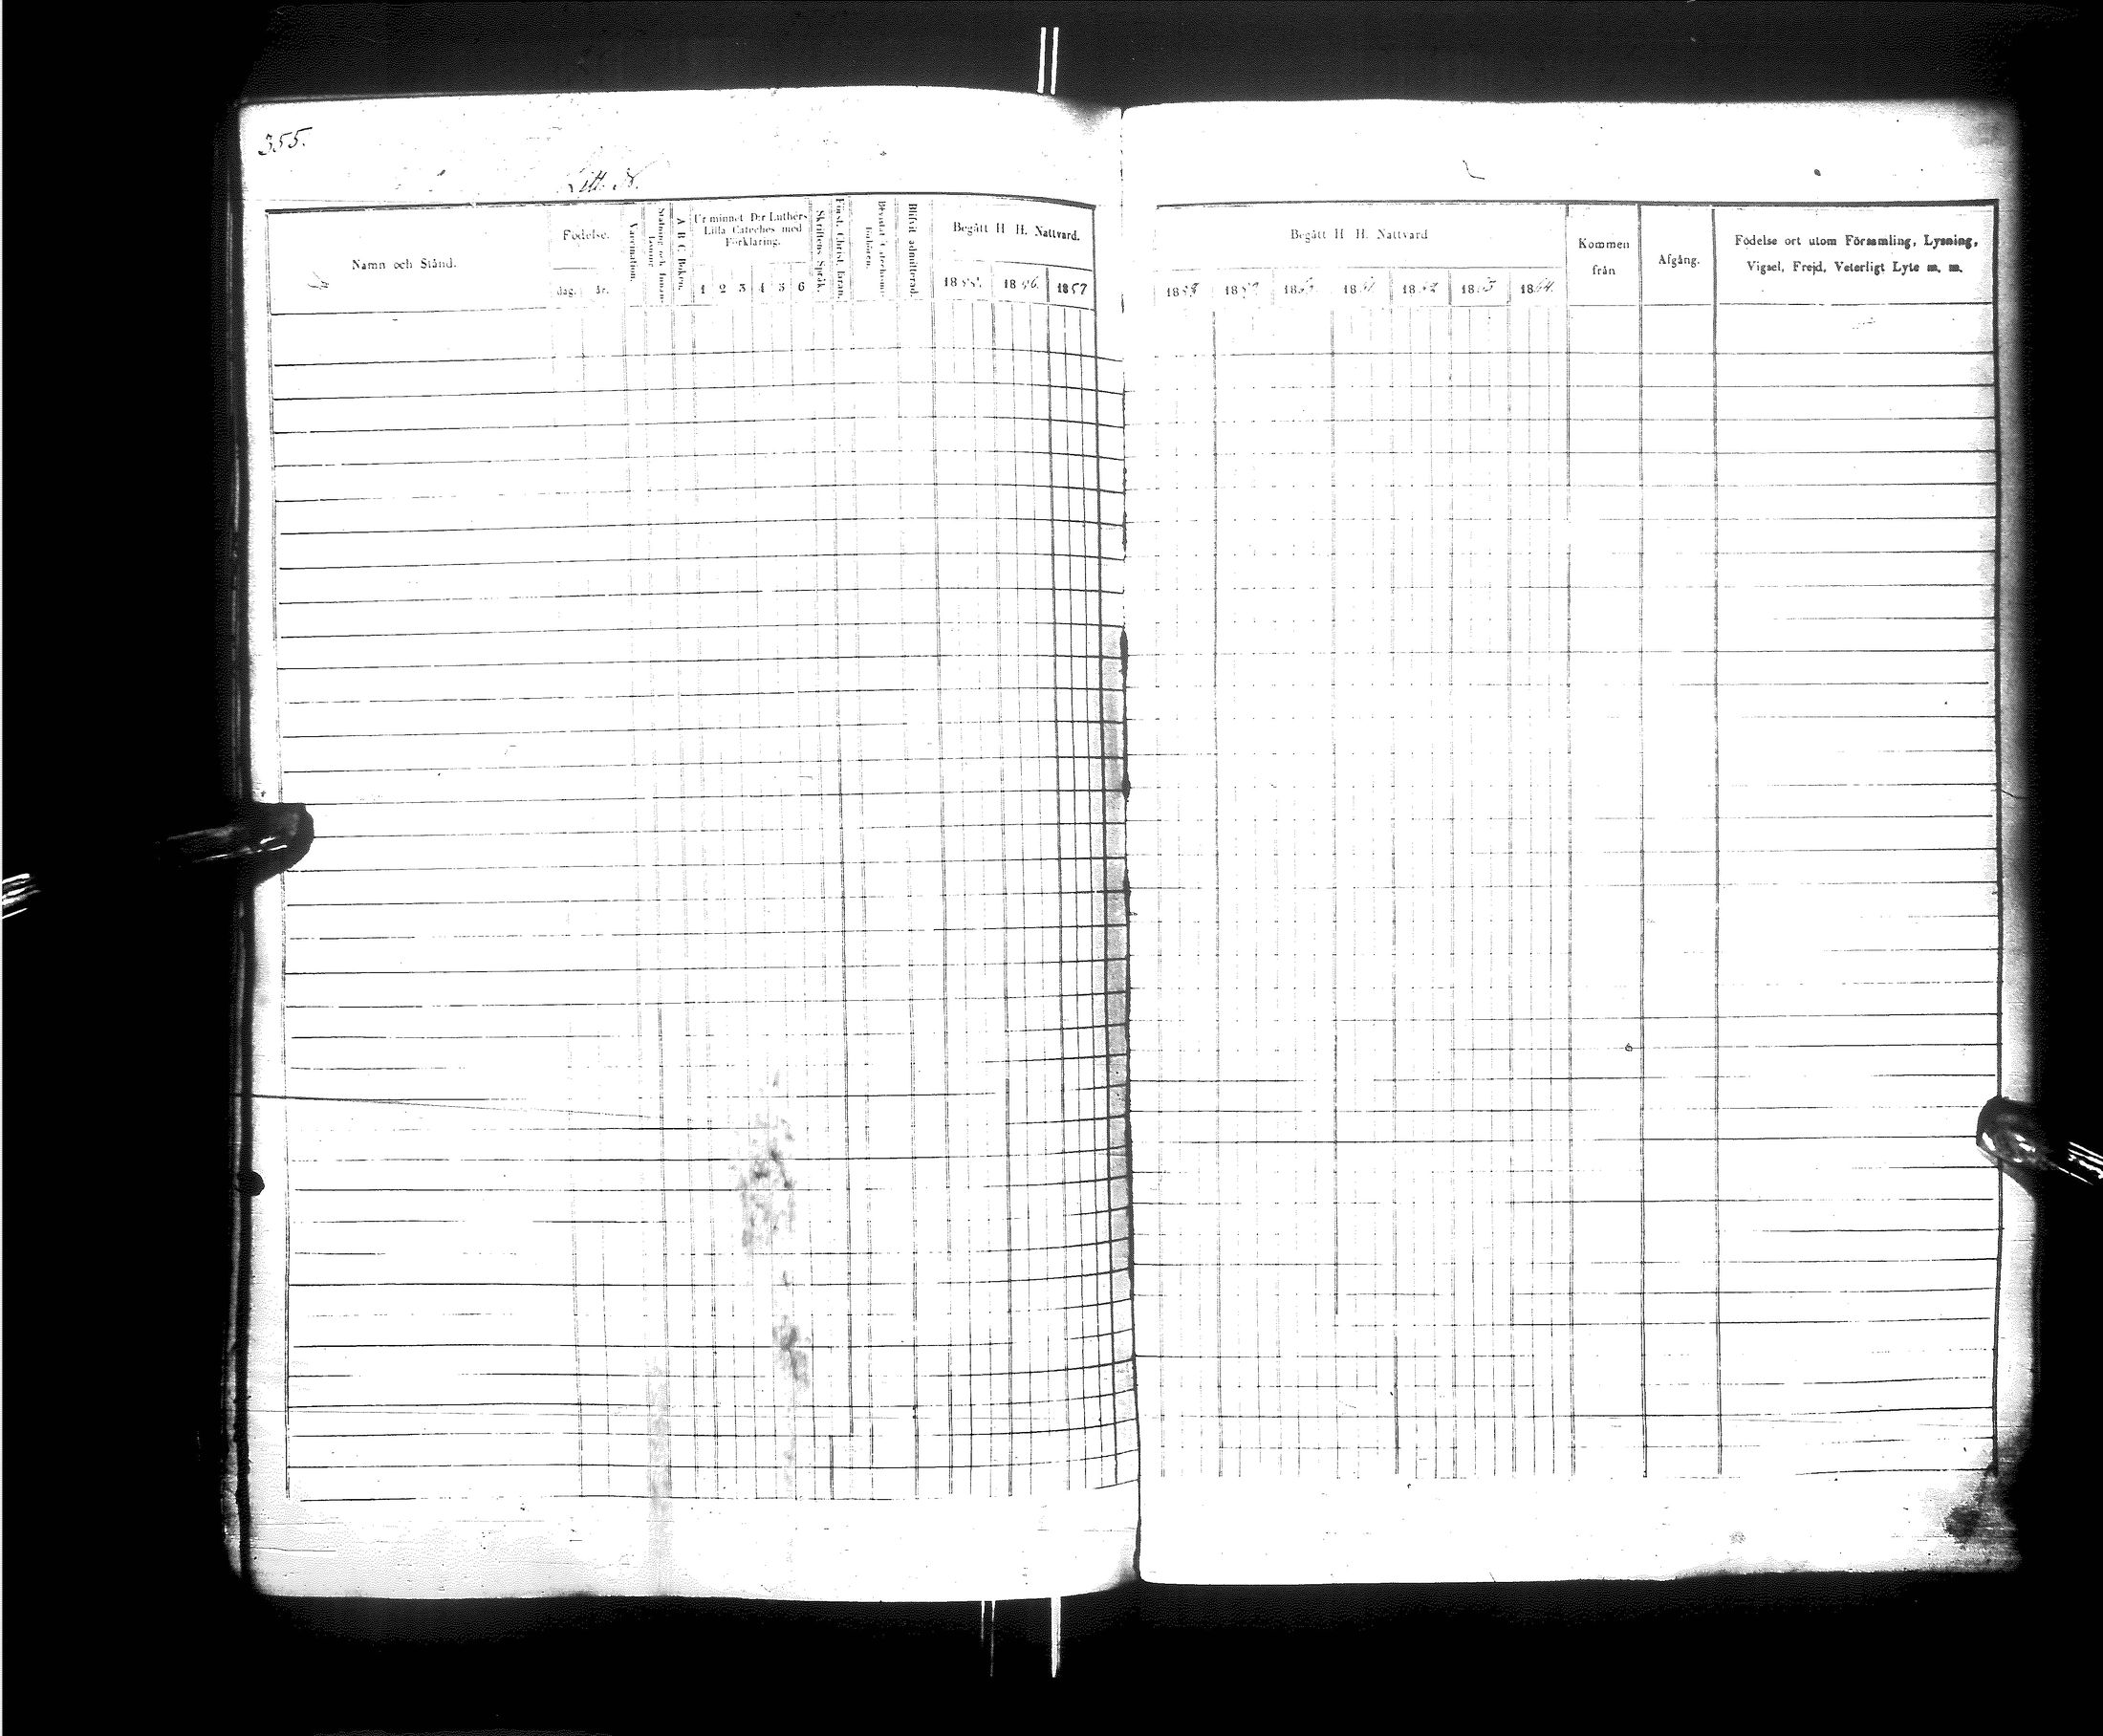 355.
Litt. N.
Namn och Stånd.
Födelse.
dag. år.
Vaccination.
Stafning och Innanläsning
A B C Boken.
Ur minnet D:r Luthers Lilla Cateches med Förklaring.
1 2 3 4 5 6
Skriftens Språk.
Förest. Christ. Eran.
Blifvit admitterad.
Begått H H. Nattvard.
1855. 1856. 1857
Begått H H. Nattvard
1858 1859 1860 1861 1862 1863 1864.
Kommen från
Afgång.
Födelse ort utom Församling, Lysning,
Vigsel, Frejd, Veterligt Lyte m. m.